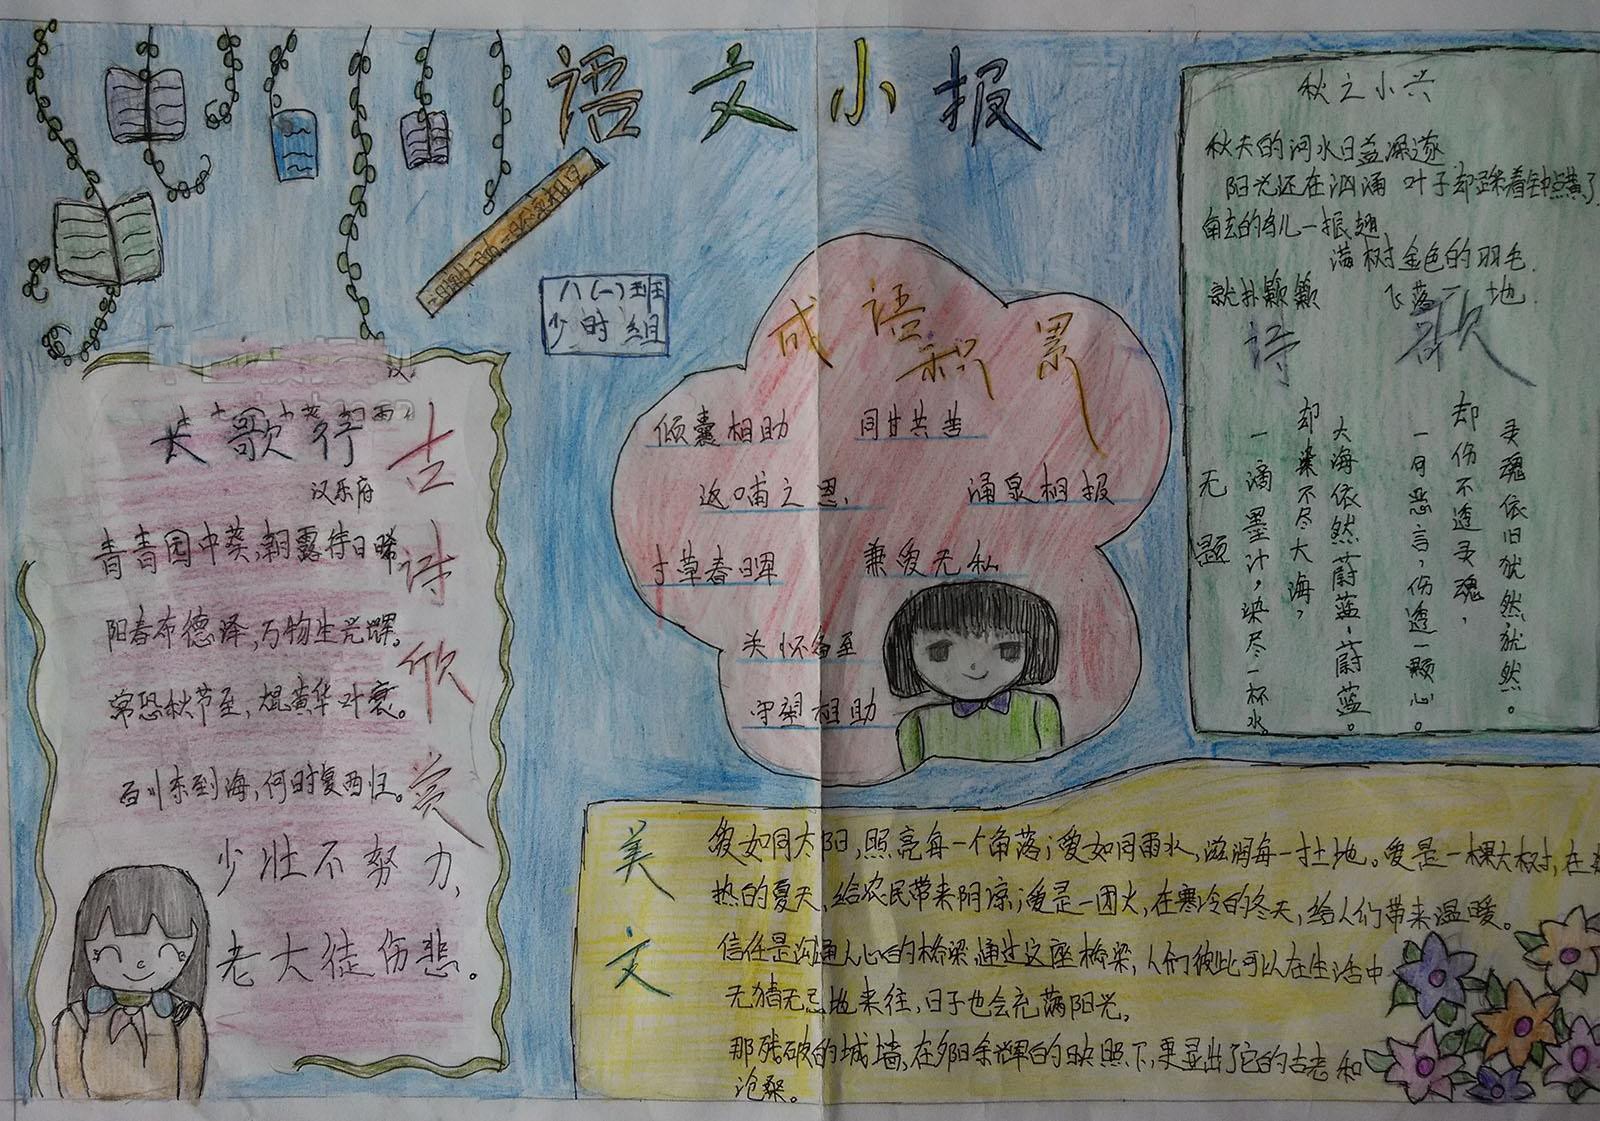 语文小报
八(一)班
少时组
古诗欣赏
长歌行
汉乐府
青青园中葵,朝露待日晞
阳春布德泽,万物生光辉。
常恐秋节至,焜黄华叶衰。
百川东到海,何时复西归。
少壮不努力,
老大徒伤悲。
成语积累
倾囊相助 同甘共苦
返哺之恩、 涌泉相报
寸草春晖 兼爱无私
关怀备至
守望相助
诗歌
秋之小兴
秋天的河水日益深邃
阳光还在汹涌 叶子却踩着钟点黄了
的鸟儿一振翅
满树金色的羽毛
就扑簌簌 飞落一地
无题
一滴墨汁,染尽一杯水
却染不尽大海,
大海依然蔚蓝,蔚蓝。
一句恶言,伤透一颗心。
却伤不透灵魂,
灵魂依旧犹然犹然。
美文
爱如同太阳,照亮每一个角落;爱如同雨水,滋润每一寸土地。爱是一棵大树,在
热的夏天,给农民带来阴凉;爱是一团火,在寒冷的冬天,给人们带来温暖。
信任是沟通人心的桥梁,通过这座桥梁,人们彼此可以在生活中
无猜无忌地来往,日子也会充满阳光。
那残破的城墙,在夕阳余辉的映照下,更显出了它的古老和
沧桑。